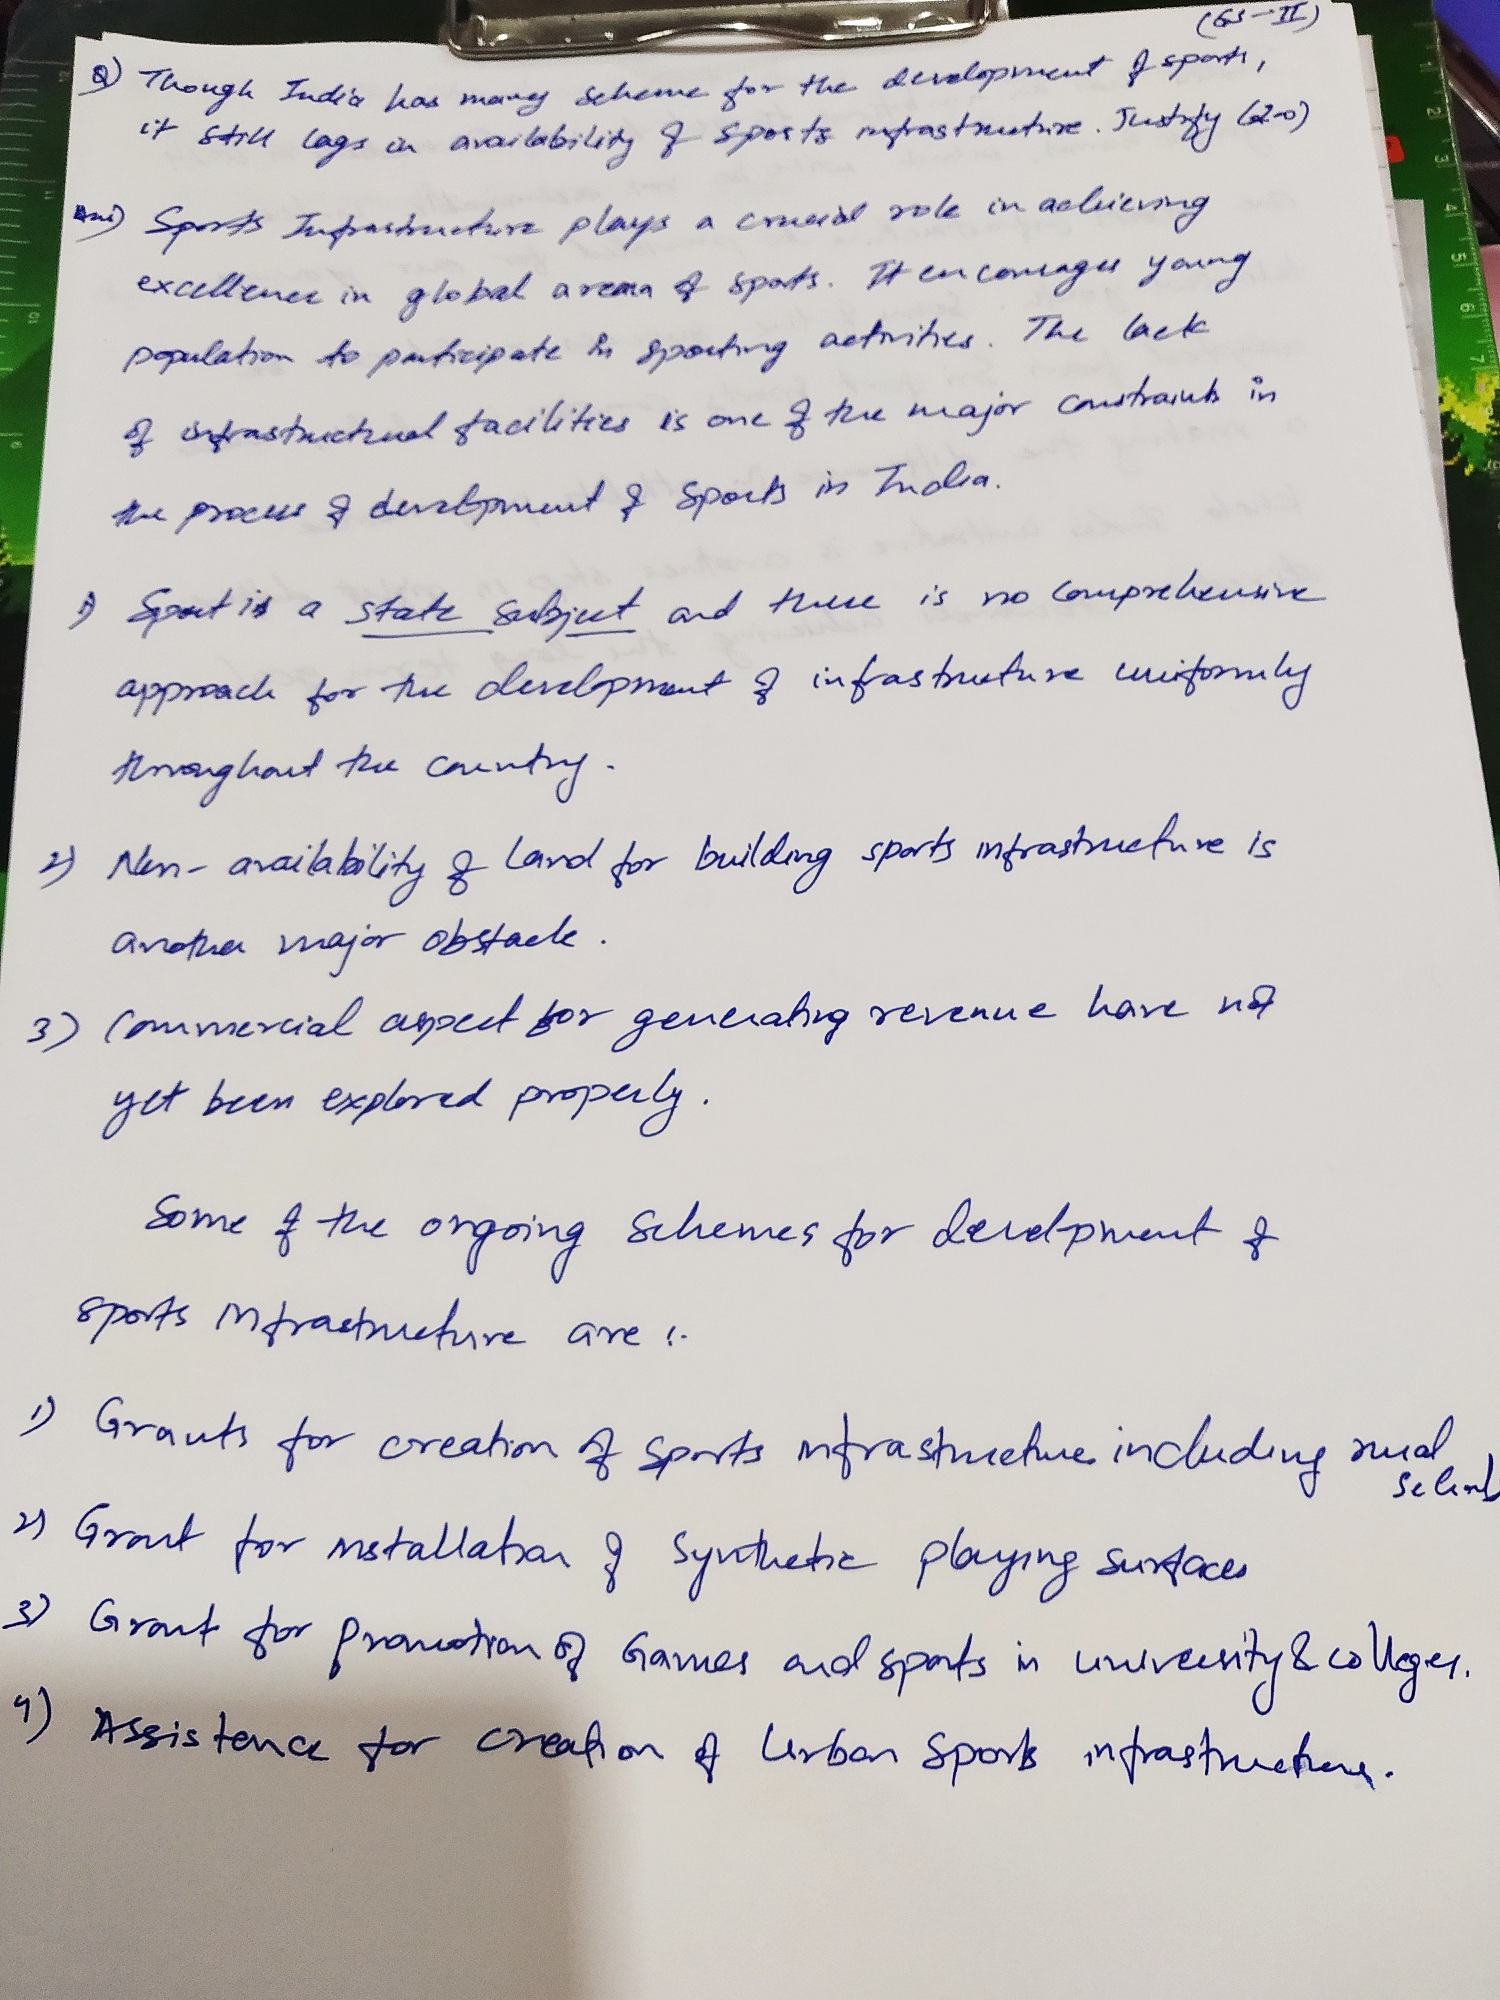 (GS-II)
Q) Though India has many scheme for the development of sports,
it still lags in availability of sports infrastructure. Justify (200)
Ans) Sports Infrastructure plays a crucial role in achieving
excellence in global arena of sports. It encourages young
population to participate in sporting activities. The lack
of infrastructural facilities is one of the major constraints in
the process of development of Sports in India.
1) Sport is a state subject and there is no comprehensive
approach for the development of infrastructure uniformly
throughout the country.
2) Non-availability of land for building sports infrastructure is
another major obstacle.
3) Commercial aspect for generating revenue have not
yet been explored properly.
Some of the ongoing schemes for development of
sports infrastructure are :-
1) Grants for creation of sports infrastructure including rural
schools
2) Grant for installation of synthetic playing surfaces
3) Grant for promotion of Games and sports in university & colleges.
4) Assistence for creation of Urban sports infrastructure.